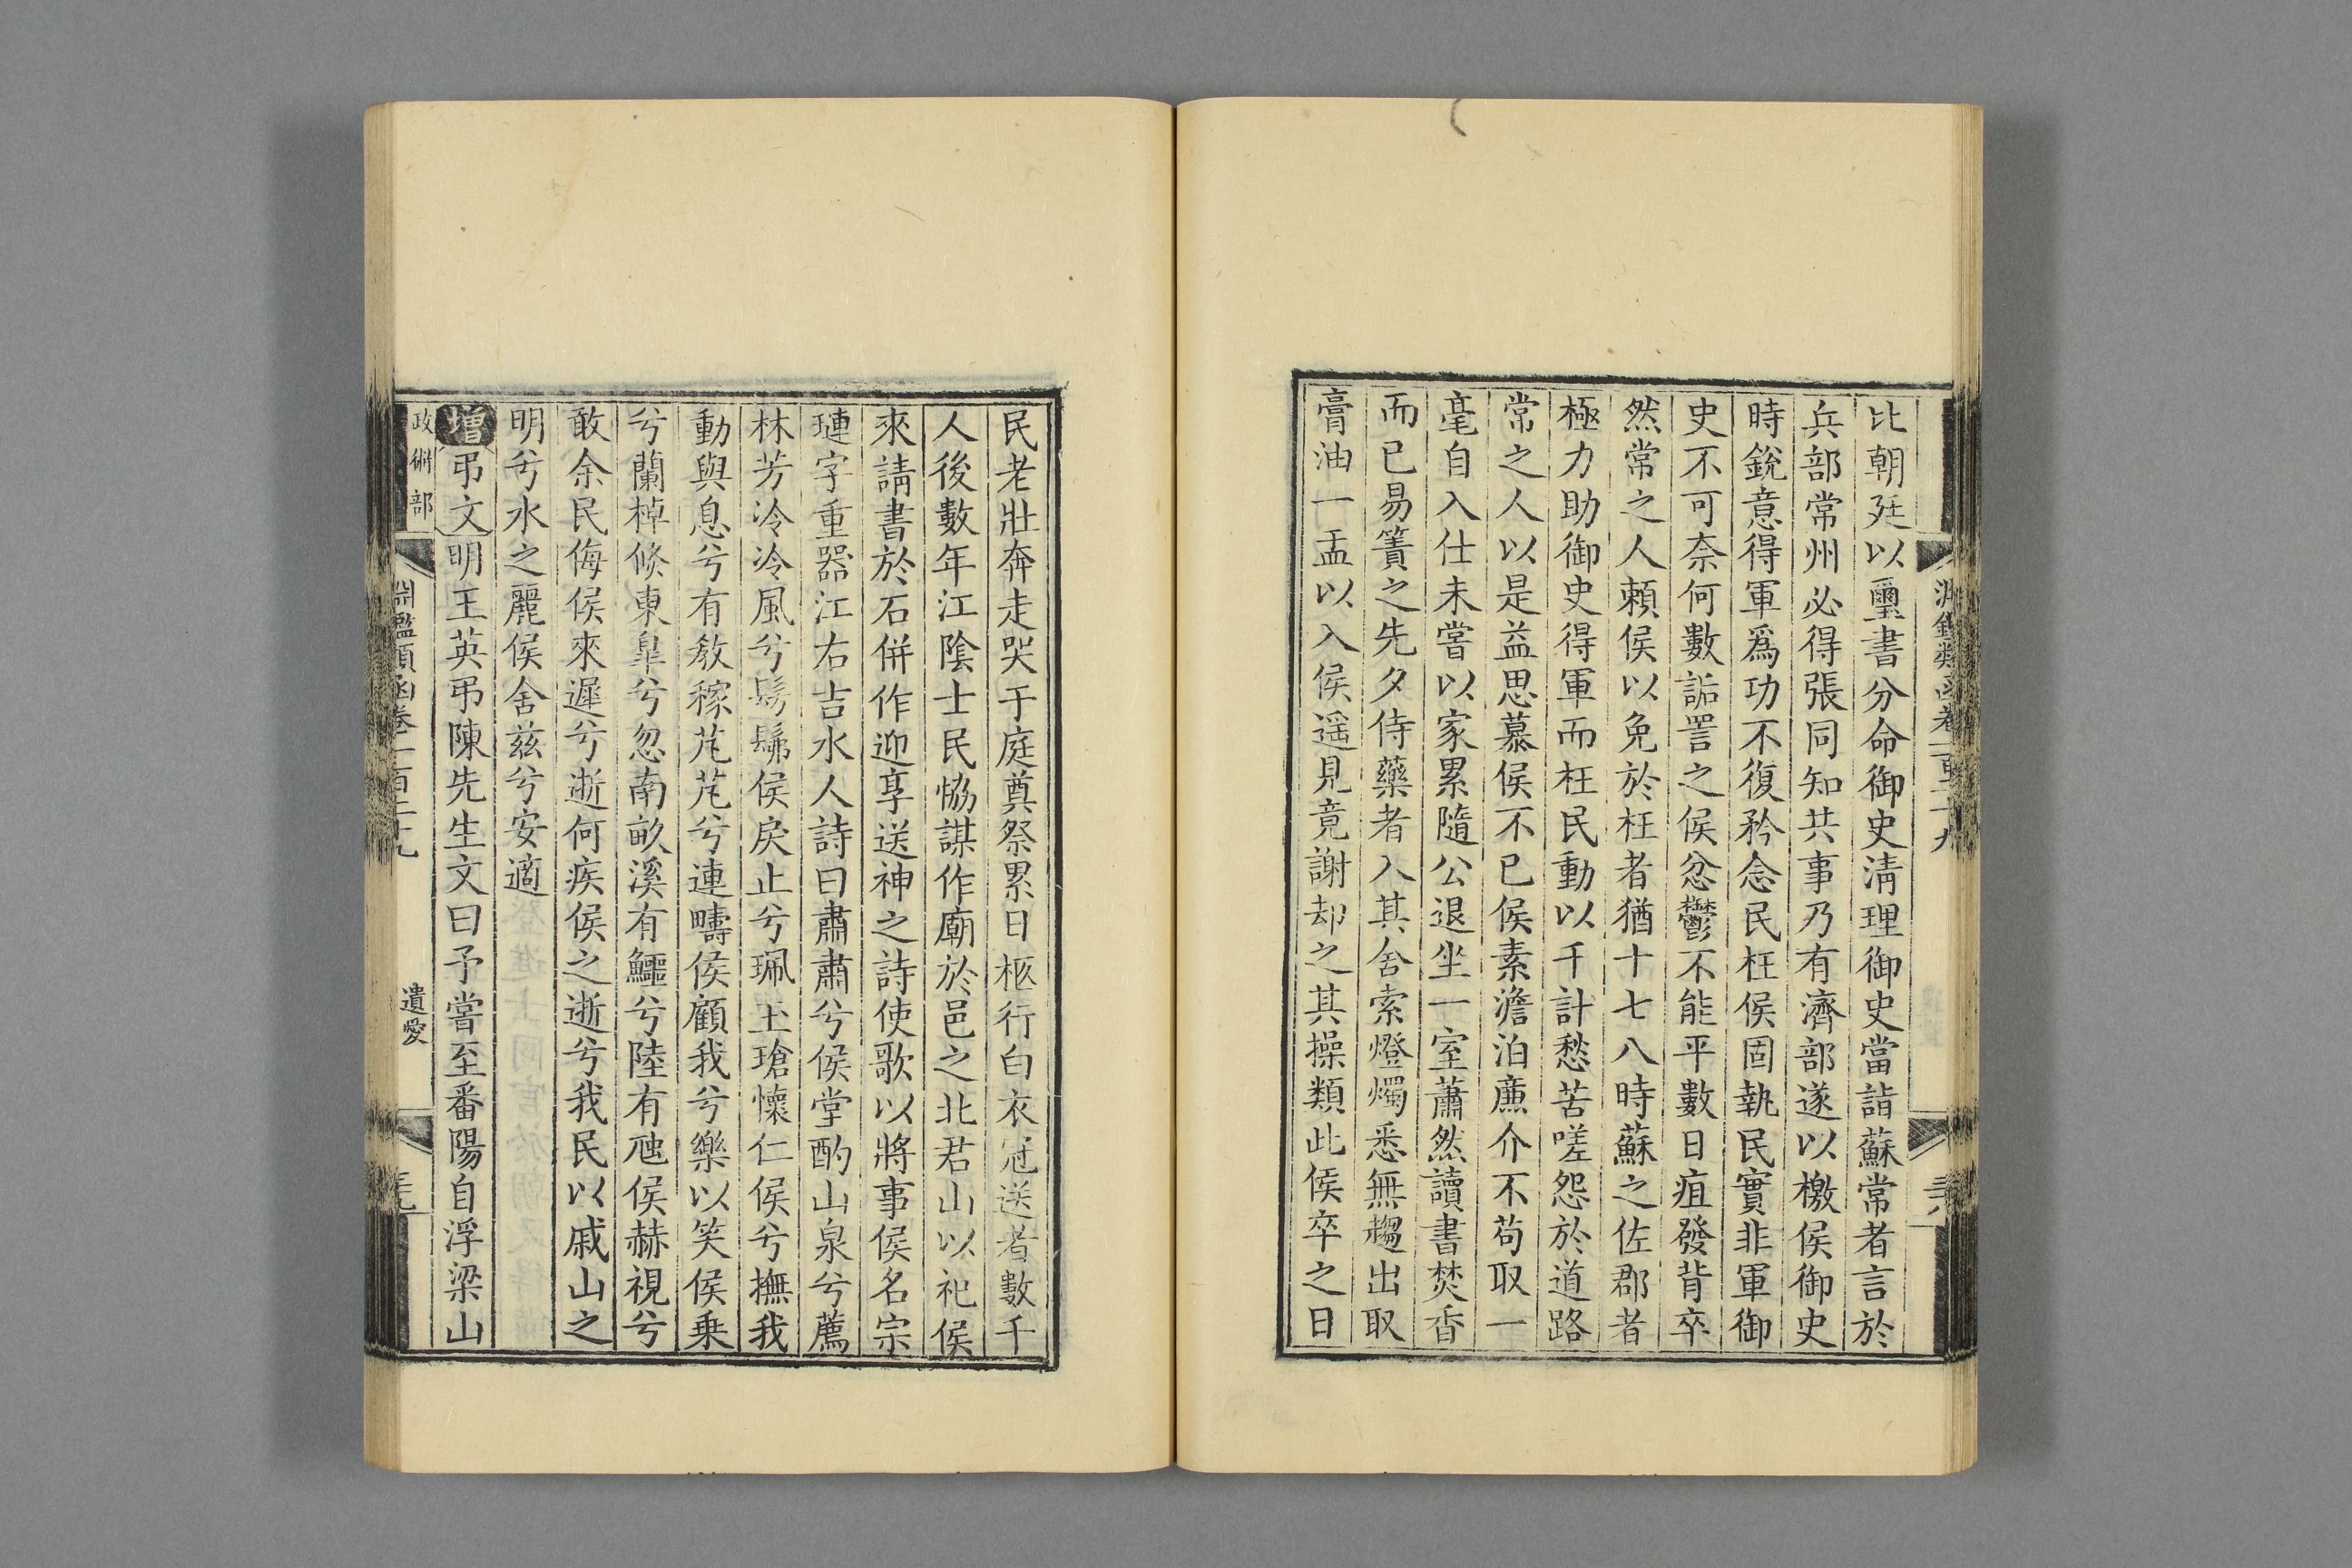 比朝廷以璽書分命御史淸理御史當詣蘇常者言於
兵部常州必得張同知共事乃有濟部遂以檄侯御史
時銳意得軍爲功不復矜念民枉侯固執民實非軍御
史不可奈何數詬詈之侯忿鬱不能平數日疽發背卒
然常之人頼侯以免於枉者猶十七八時蘇之佐郡者
極力助御史得軍而枉民動以千計愁苦嗟怨於道路
常之人以是益思慕侯不已侯素澹泊廉介不苟取一
毫自入仕未嘗以家累隨公退坐一室蕭然讀書焚香
而已易簀之先夕侍藥者入其舍索燈燭悉無趨出取
膏油一盂以入侯遥見竟謝却之其操類此侯卒之日
民老壯奔走哭于庭奠祭累日柩行白衣冠送者數千
人後數年江隂士民恊謀作廟於邑之北君山以祀侯
來請書於石併作迎享送神之詩使歌以將事侯名宗
璉字重器江右吉水人詩曰肅肅兮侯堂酌山泉兮薦
林芳泠泠風兮髣髴侯戾止兮珮玉瑲懷仁侯兮撫我
動與息兮有敎稼芃芃兮連疇侯顧我兮樂以笑侯乗
兮蘭棹倏東臯兮忽南畝溪有鱷兮陸有虺侯赫視兮
敢余民侮侯來遲兮逝何疾侯之逝兮我民以戚山之
明兮水之麗侯舍兹兮安適
增弔文明王英弔陳先生文曰予嘗至番陽自浮梁山
政術部 淵鑑類函卷一百二十九 遺愛